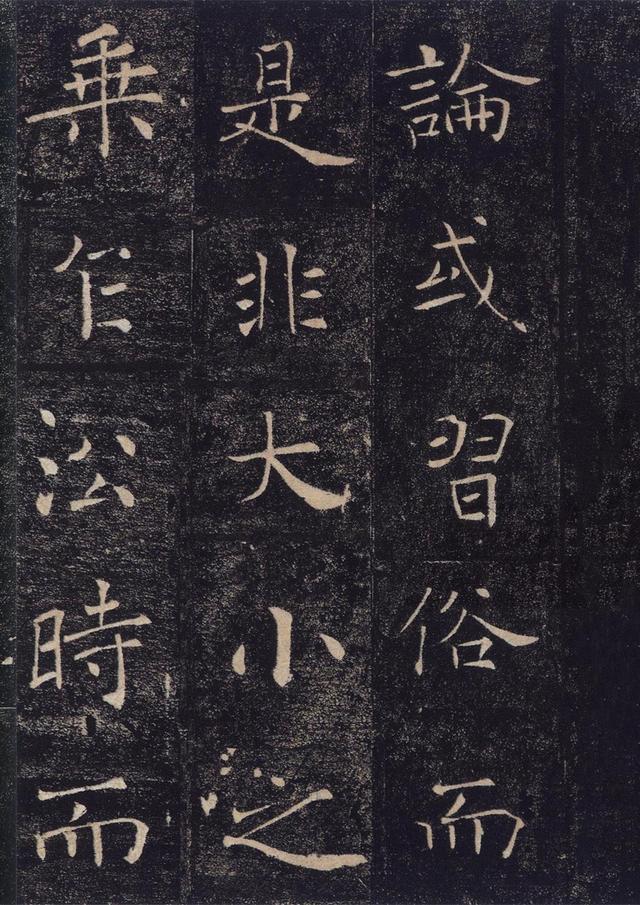 論或習俗而
是非大小之
乘乍沿時而